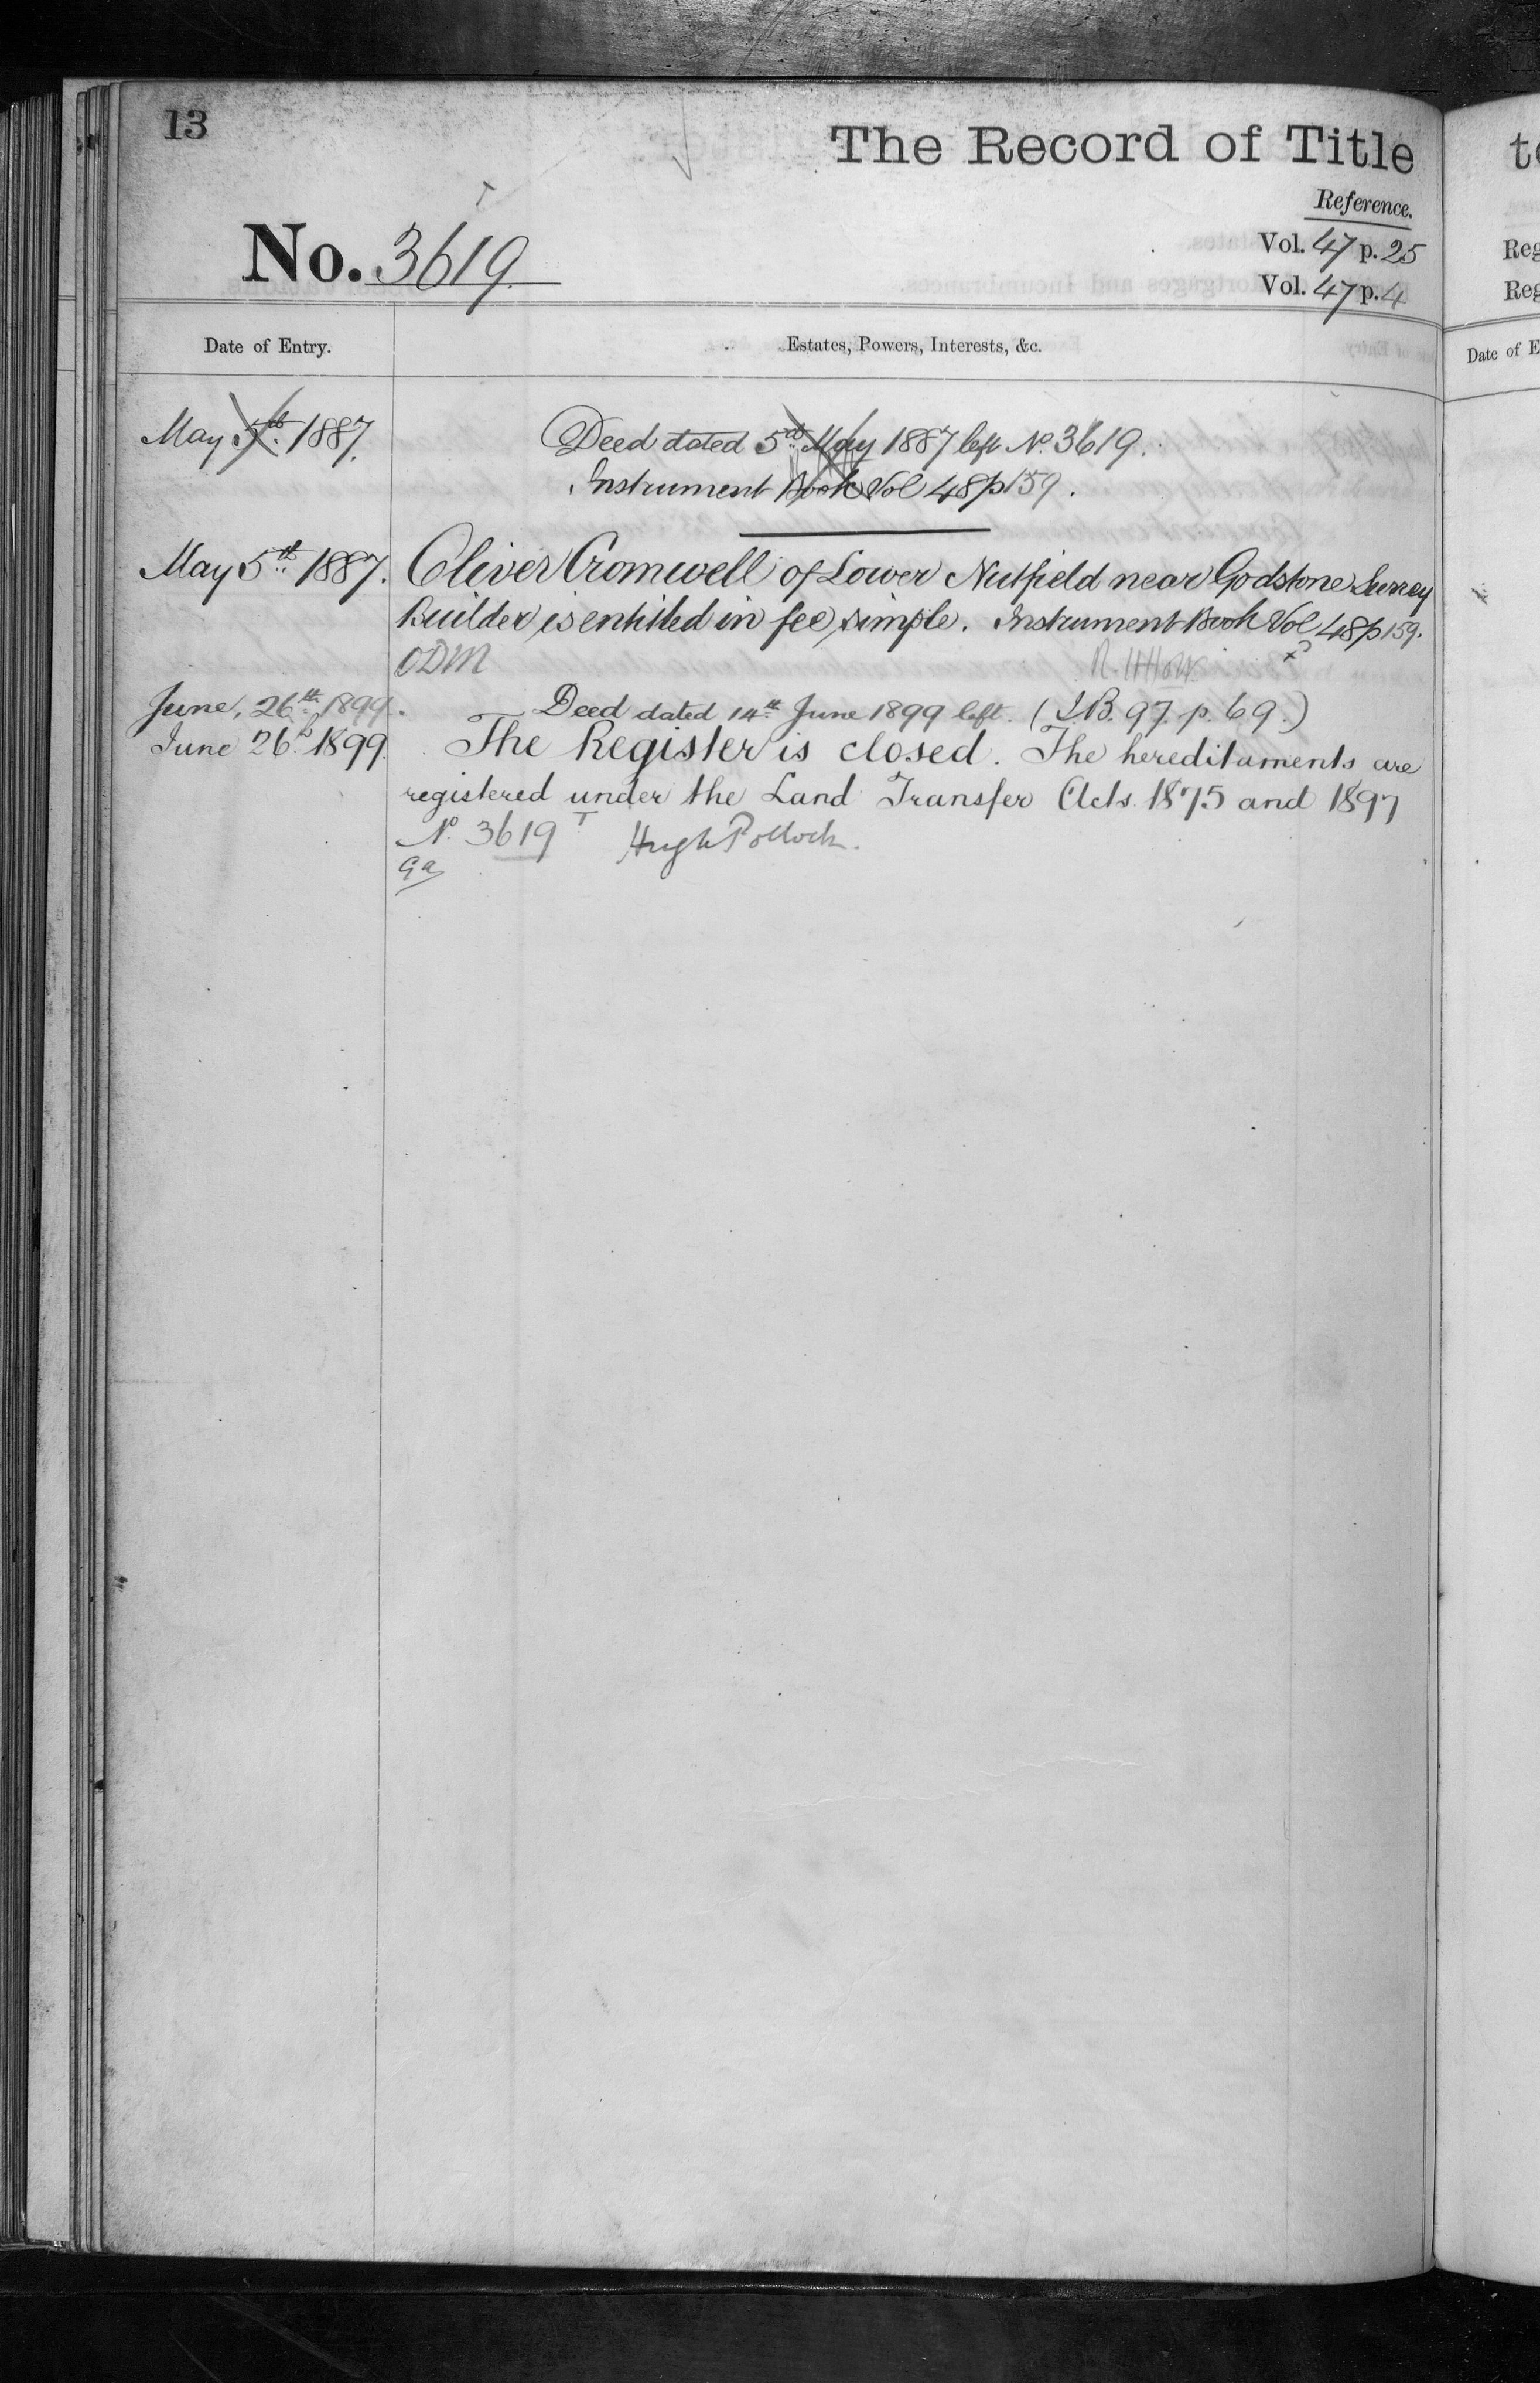 13
The Record of Title
Reference.
No. 3619
Vol. 47 p. 25
Vol. 47 p. 4
Date of Entry.
Estates, Powers, Interests, &c.
May 5th 1887.
Deed dated 5th May 1887 left No. 3619.
Instrument Book Vol 48 p 159.
May 5th 1887.
Oliver Cromwell of Lower Nutfield near Godstone Surrey
Builder is entitled in fee simple. Instrument Book Vol 48 p 159.
ODM
June, 26th 1899.
Deed dated 14th June 1899 left. (I.B. 97. p. 69.)
June 26th 1899.
The Register is closed. The hereditaments are
registered under the Land Transfer Acts 1875 and 1897
No. 3619 T Hugh Pollock.
Ga
to
Reg
Reg
Date of E